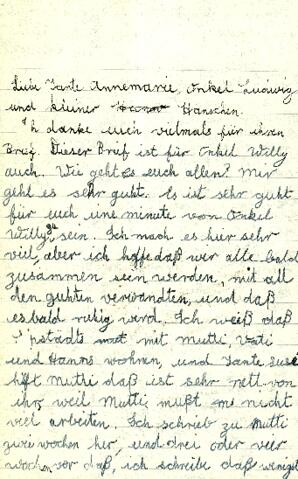 Liebe Tante Annemarie, Onkel Ludwig
und kleiner Hänschen.
Ich danke euch vielmals für ihren
Brief. Dieser Brief ist für Onkel Willy
auch. Wie geht es euch allen? Mir
geht es sehr guht. Es ist sehr guht
für euch une minute von Onkel
Willy zu sein. Ich mach es hier sehr
viel, aber ich hoffe daß wir alle bald
zusammen sein werden, mit all
den guhten verwandten, und daß
es bald ruhig wird. Ich weiß daß
mit mutti, Vati
und Hanns wohnen, und Tante Susi
hilft Mutti daß ist sehr nett von
ihr weil Mutti mußt nicht
viel arbeiten. Ich schrieb zu Mutti
zwei wochen her, und drei oder vier
wochen vor daß, ich schreibe daß wenigst